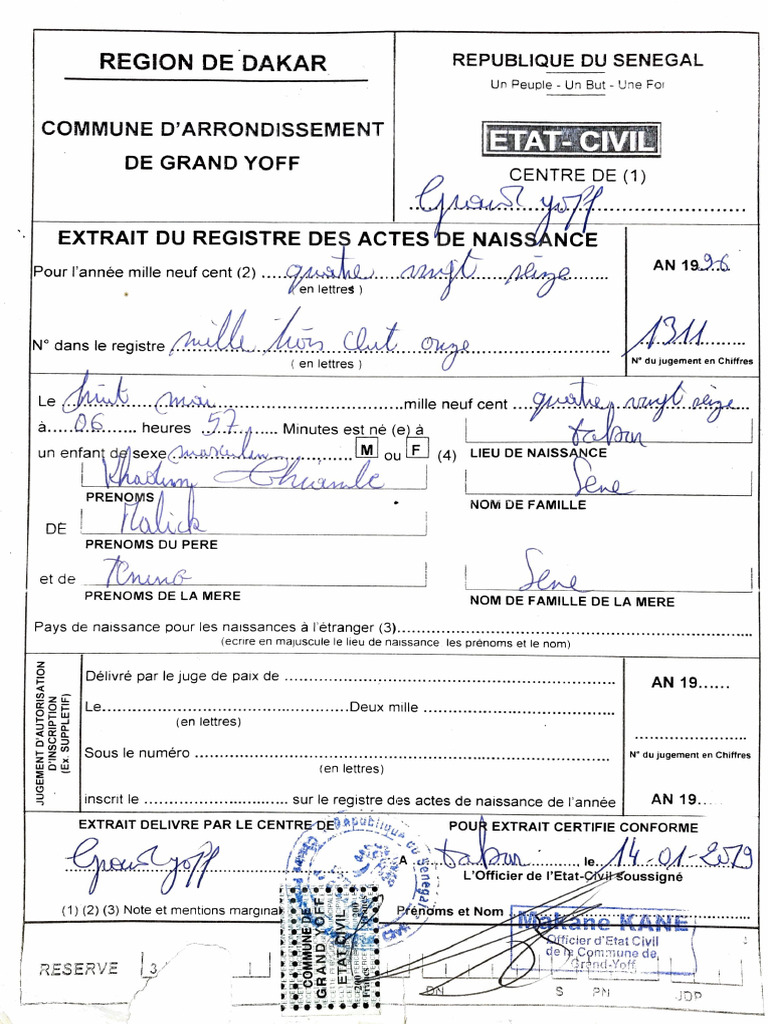 REGION DE DAKAR
COMMUNE D'ARRONDISSEMENT
DE GRAND YOFF
REPUBLIQUE DU SENEGAL
Un Peuple - Un But - Une Foi
ETAT- CIVIL
CENTRE DE (1)
Grand yoff
EXTRAIT DU REGISTRE DES ACTES DE NAISSANCE
Pour l'année mille neuf cent (2) quatre vingt seize
(en lettres )
AN 1996
N° dans le registre mille trois cent onze
( en lettres )
1311
N° du jugement en Chiffres
Le huit mai mille neuf cent quatre vingt seize
à 06 heures 57 Minutes est né (e) à
un enfant de sexe masculin M ou F (4) LIEU DE NAISSANCE
Khadim
PRENOMS
Sene
NOM DE FAMILLE
DE Malick
PRENOMS DU PERE
et de
PRENOMS DE LA MERE
Sene
NOM DE FAMILLE DE LA MERE
Pays de naissance pour les naissances à l'étranger (3)
(ecrire en majuscule le lieu de naissance les prénoms et le nom)
JUGEMENT D'AUTORISATION
D'INSCRIPTION
(Ex. SUPPLETIF)
Délivré par le juge de paix de
AN 19......
Le Deux mille
(en lettres)
Sous le numéro
(en lettres)
N° du jugement en Chiffres
inscrit le sur le registre des actes de naissance de l'année
AN 19
EXTRAIT DELIVRE PAR LE CENTRE DE
Grand yoff
POUR EXTRAIT CERTIFIE CONFORME
A le 14-01-2019
L'Officier de l'Etat-Civil soussigné
(1) (2) (3) Note et mentions marginal
Prénoms et Nom
République du Sénégal
COMMUNE DE
GRAND YOFF
ETAT CIVIL
200 Francs
Makane KANE
Officier d'Etat Civil
de la Commune de
Grand-Yoff
RESERVE 3
DN S PN JDP